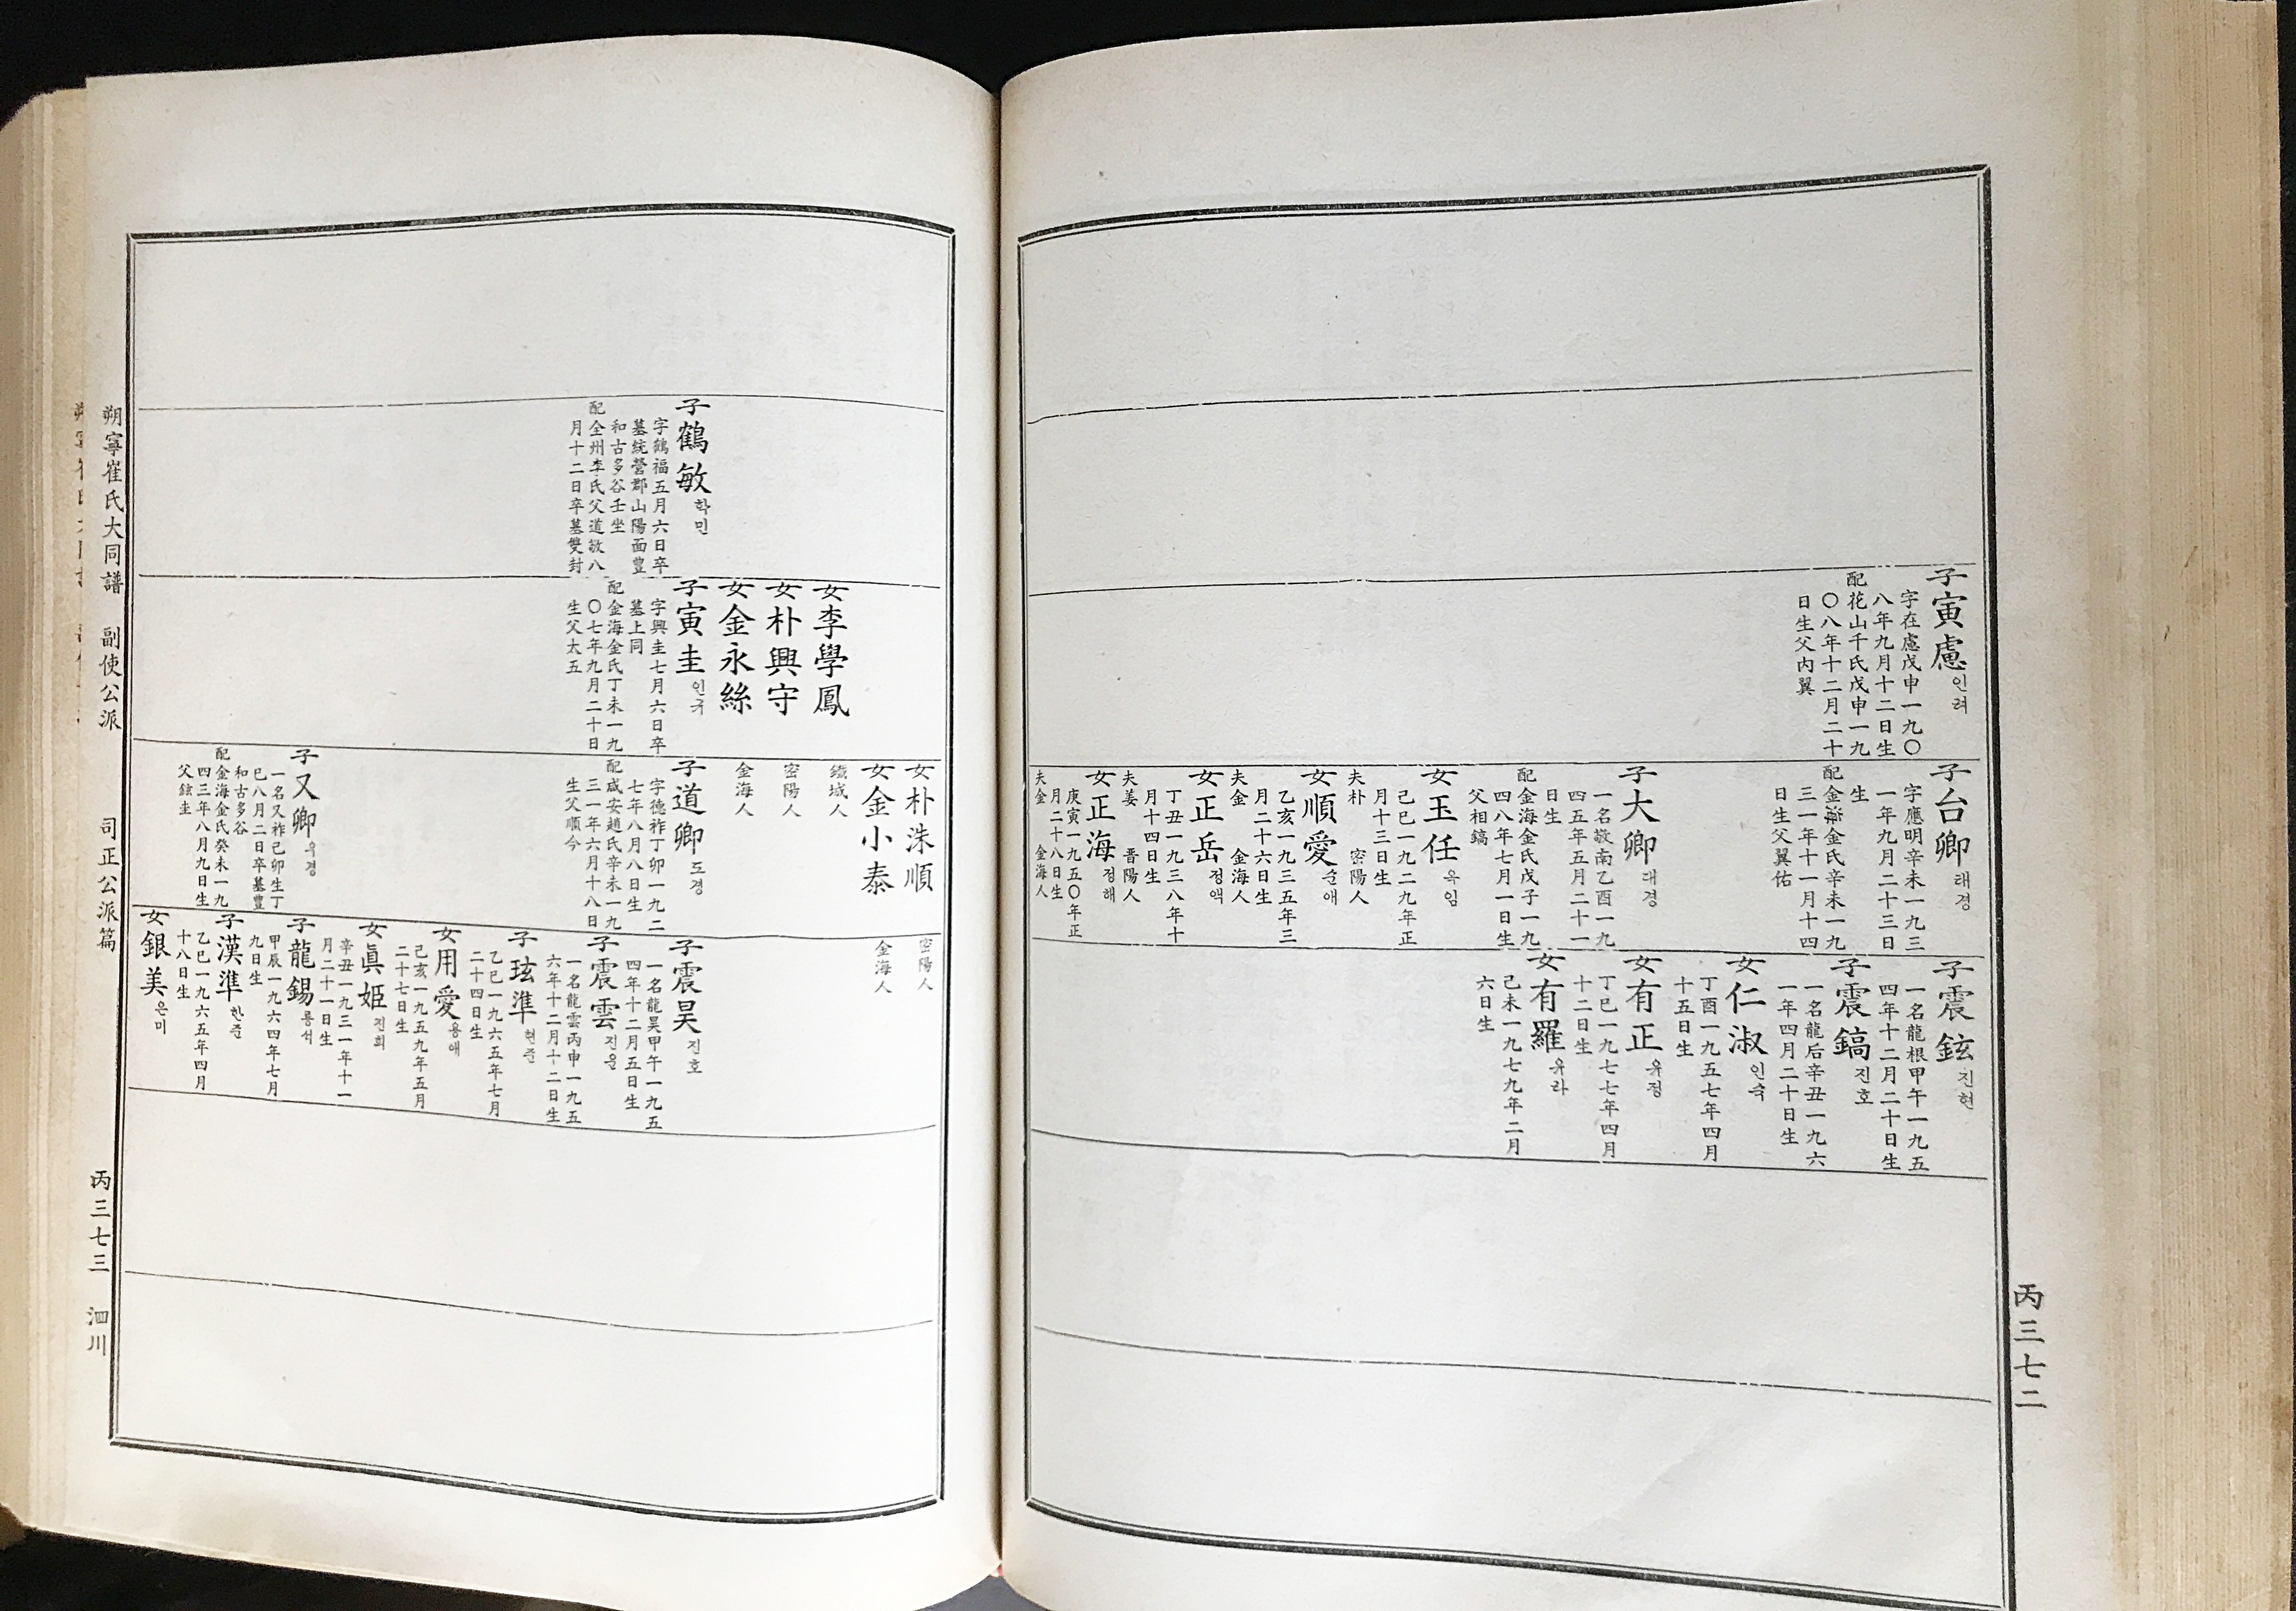 子寅慮인려
字在慮戊申一九〇
八年九月十二日生
配花山千氏戊申一九
〇八年十二月二十
日生父内翼
子台卿태경
字應明辛未一九三
一年九月二十三日
生
配金海金氏辛未一九
三一年十一月十四
日生父翼佑
子大卿대경
一名敬南乙酉一九
四五年五月二十一
日生
配金海金氏戊子一九
四八年七月一日生
父相鎬
女玉任옥임
己巳一九二九年正
月十三日生
夫朴 密陽人
女順愛순애
乙亥一九三五年三
月二十六日生
夫金 金海人
女正岳정액
丁丑一九三八年十
月十四日生
夫姜 晋陽人
女正海정해
庚寅一九五〇年正
月二十八日生
夫金 金海人
子震鉉진현
一名龍根甲午一九五
四年十二月二十日生
子震鎬진호
一名龍后辛丑一九六
一年四月二十日生
女仁淑인숙
丁酉一九五七年四月
十五日生
女有正유정
丁巳一九七七年四月
十二日生
女有羅유라
己未一九七九年二月
六日生
丙三七二
子鶴敏학민
字鶴福五月六日卒
墓統營郡山陽面豊
和古多谷壬坐
配全州李氏父道敬八
月十二日卒墓雙封
女李學鳳
女朴興守
女金永絲
子寅圭인규
字興圭七月六日卒
墓上同
配金海金氏丁未一九
〇七年九月二十日
生父太五
女朴洙順
女金小泰
鐵城人
密陽人
金海人
子道卿도경
字德祚丁卯一九二
七年八月八日生
配咸安趙氏辛未一九
三一年六月十八日
生父順今
子又卿우경
一名又祚己卯生丁
巳八月二日卒墓豊
和古多谷
配金海金氏癸未一九
四三年八月九日生
父鉉圭
密陽人
金海人
子震昊진호
一名龍昊甲午一九五
四年十二月五日生
子震雲진운
一名龍雲丙申一九五
六年十二月十二日生
子玹準현준
乙巳一九六五年七月
二十四日生
女用愛용애
己亥一九五九年五月
二十七日生
女眞姬진희
辛丑一九三一年十一
月二十一日生
子龍錫룡석
甲辰一九六四年七月
九日生
子漢準한준
乙巳一九六五年四月
十八日生
女銀美은미
朔寧崔氏大同譜 副使公派 司正公派篇 丙三七三 泗川